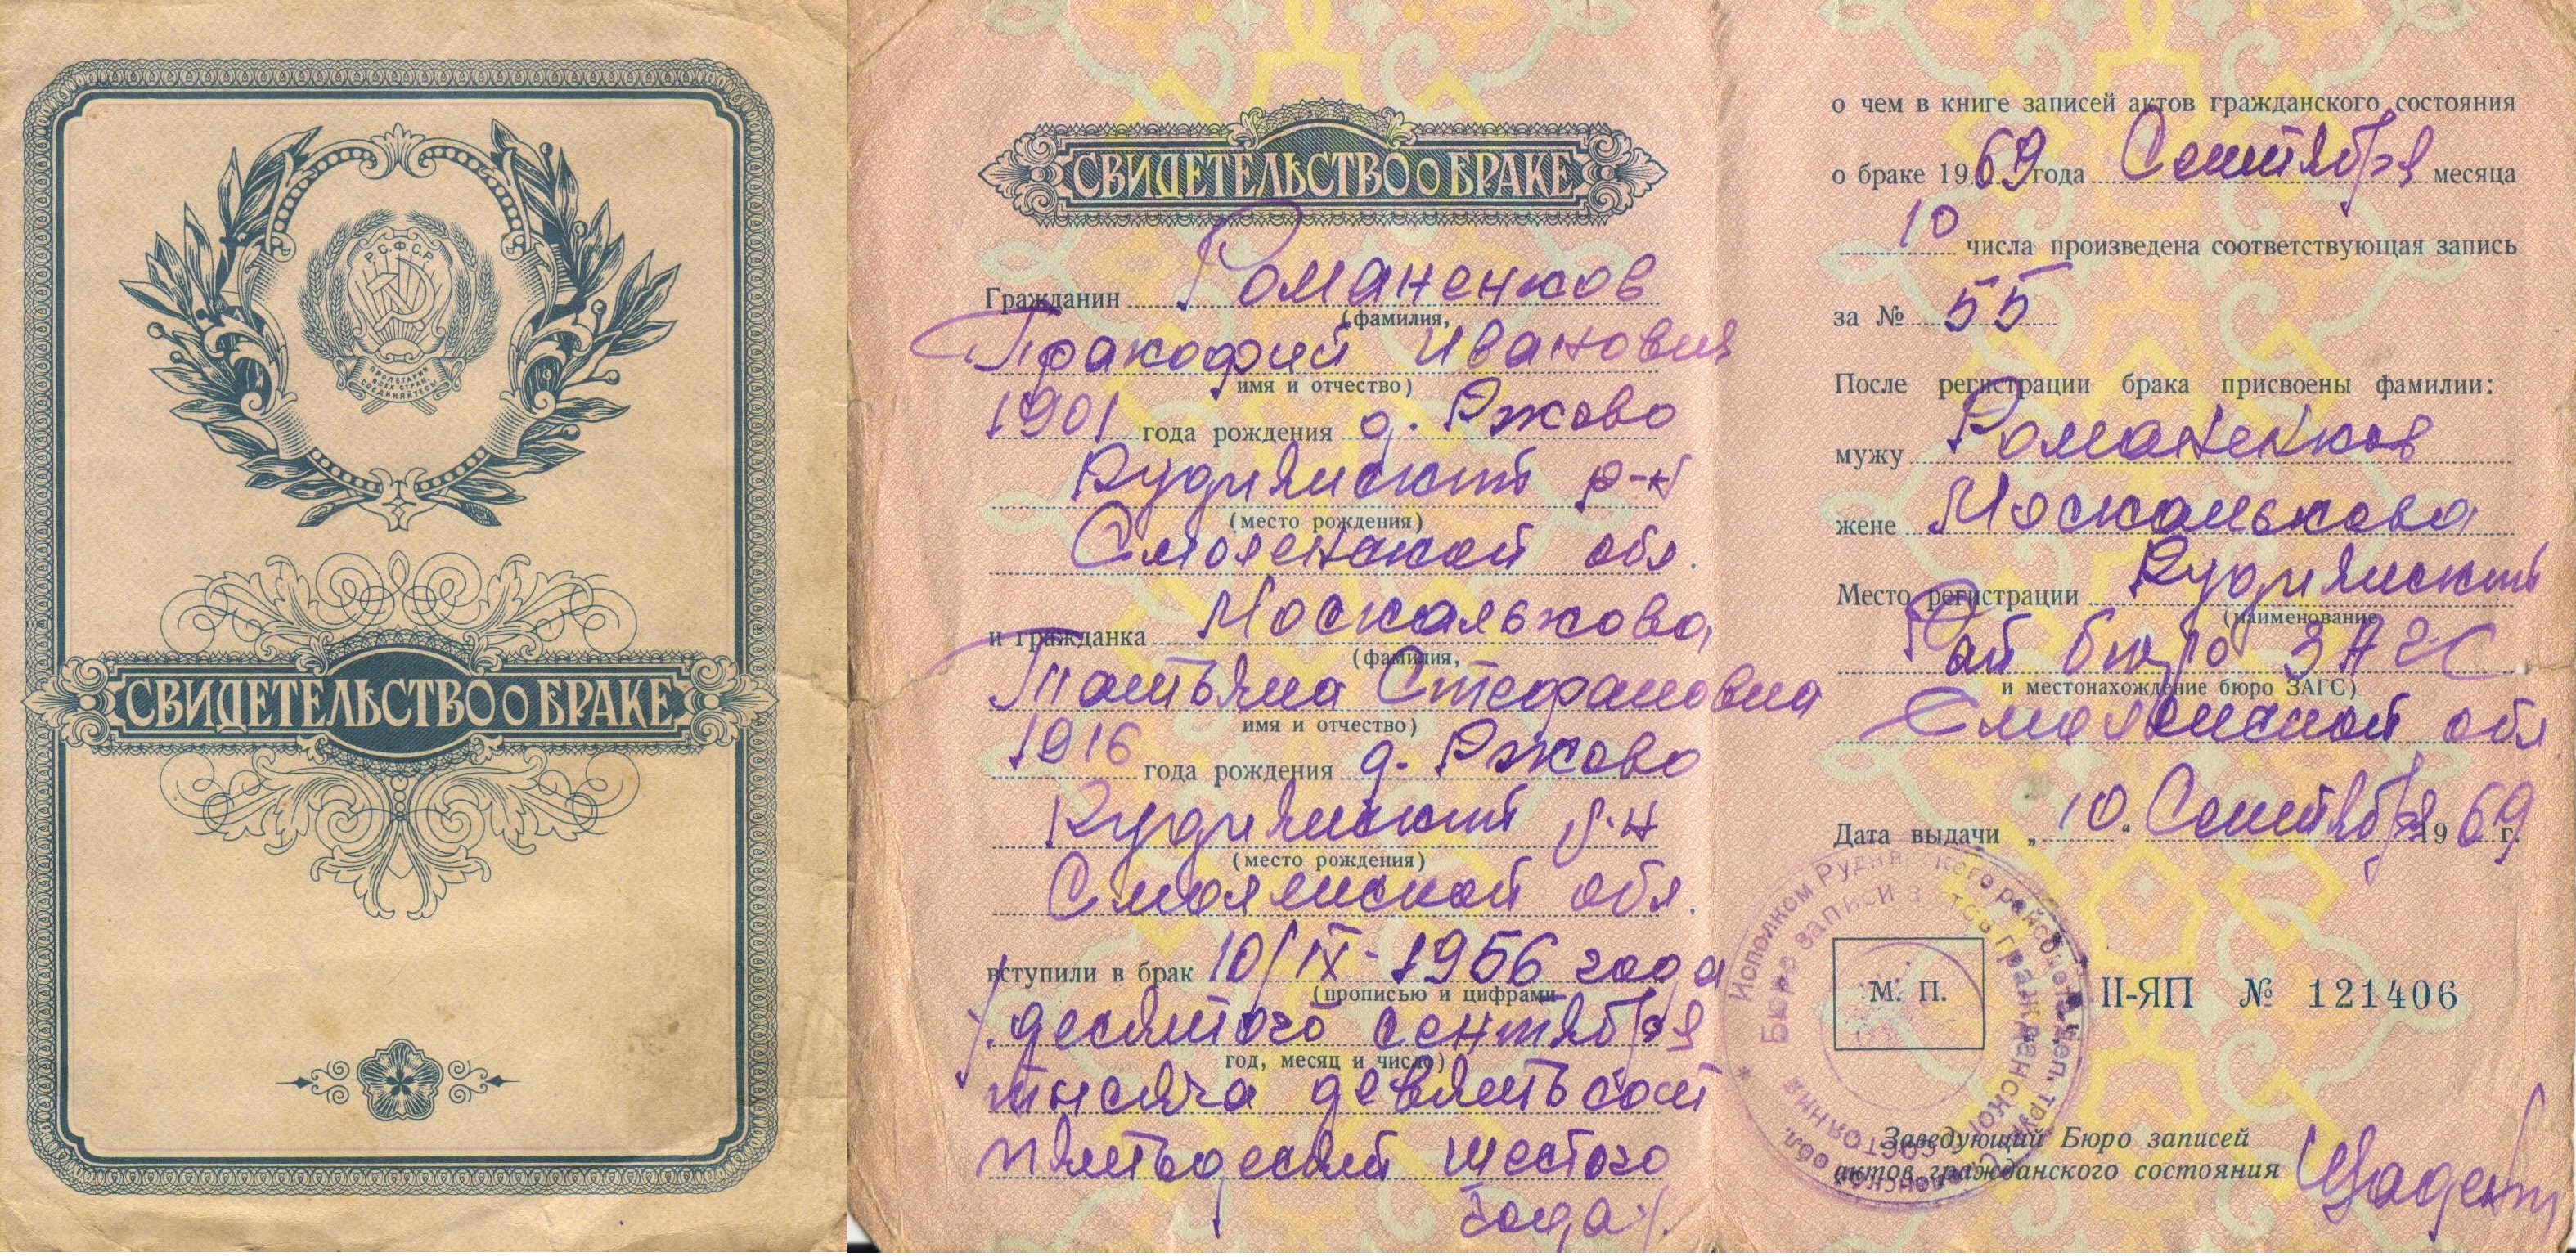 Р.С.Ф.С.Р.
ПРОЛЕТАРИИ
ВСЕХ СТРАН,
СОЕДИНЯЙТЕСЬ!
СВИДЕТЕЛЬСТВО О БРАКЕ
СВИДЕТЕЛЬСТВО О БРАКЕ
Гражданин Романенков
(фамилия,
Пракофий Иванович
имя и отчество)
1901 года рождения д. Ржаво
Руднянский р-н
(место рождения)
Смоленской обл.
и гражданка Москалькова
(фамилия,
Татьяна Стефановна
имя и отчество)
1916 года рождения д. Ржаво
Руднянский р-н
(место рождения)
Смоленской обл.
вступили в брак 10/IX-1956 года
(прописью и цифрами
/десятого сентября
год, месяц и число)
тысяча девятьсот
пятьдесят шестого
года/.
о чем в книге записей актов гражданского состояния
о браке 1969 года Сентября месяца
10 числа произведена соответствующая запись
за № 55
После регистрации брака присвоены фамилии:
мужу Романенков
жене Москалькова
Место регистрации Руднянский
(наименование
Рай бюро ЗАГС
и местонахождение бюро ЗАГС)
Смоленской обл
Дата выдачи „10“ Сентября 1969 г.
Исполком Руднянского райсовета деп. труд. Смоленской обл.
Бюро записи актов гражданского состояния
М. П.
II-ЯП № 121406
Заведующий Бюро записей
актов гражданского состояния